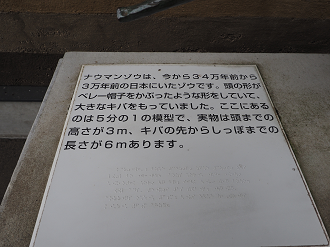 ナウマンゾウは、今から34万年前から
3万年前の日本にいたゾウです。頭の形が
ベレー帽子をかぶったような形をしていて、
大きなキバをもっていました。ここにある
のは5分の1の模型で、実物は頭までの
高さが3m、キバの先からしっぽまでの
長さが6mあります。